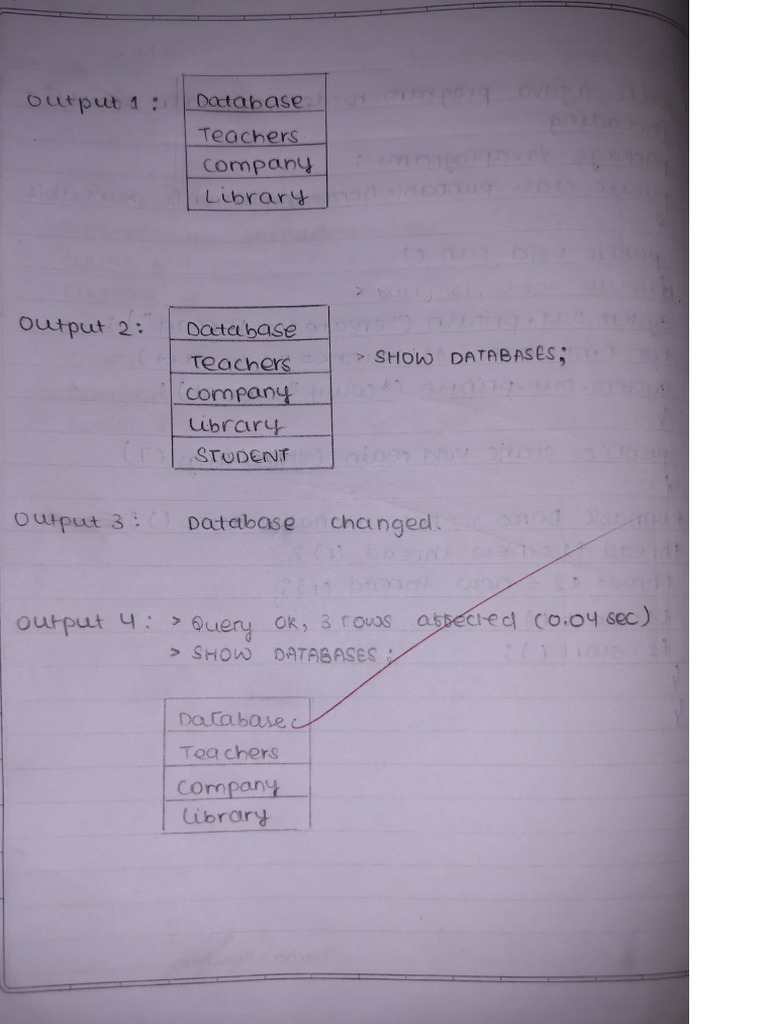 Output 1 :
Database
Teachers
Company
Library
Output 2 :
Database
Teachers > SHOW DATABASES;
Company
Library
STUDENT
Output 3 : Database changed.
Output 4 : > Query OK, 3 rows affected (0.04 sec)
> SHOW DATABASES;
Database
Teachers
Company
Library